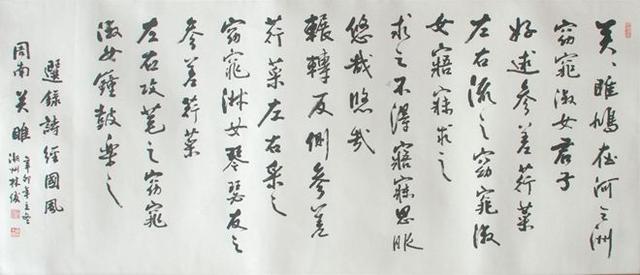 关々雎鳩在河之洲
窈窕淑女君子
好逑参差荇菜
左右流之窈窕淑
女寤寐求之
求之不得寤寐思服
悠哉悠哉
輾轉反側参差
荇菜左右采之
窈窕淑女琴瑟友之
参差荇菜
左右芼之窈窕
淑女鍾鼓樂之
選錄詩經國風
周南关雎
辛卯年
潮州林